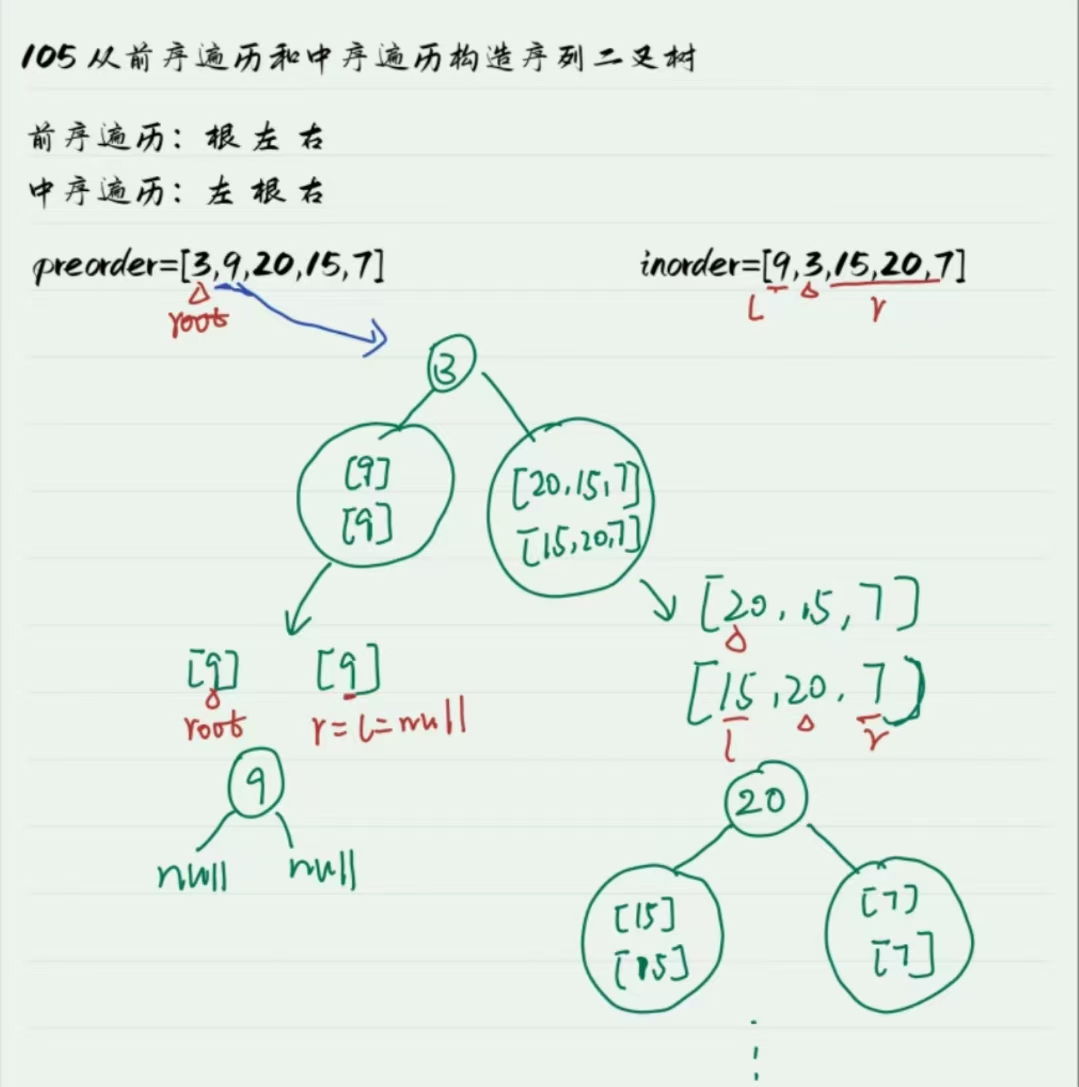 105 从前序遍历和中序遍历构造序列二叉树
前序遍历：根 左 右
中序遍历：左 根 右
preorder=[3,9,20,15,7] inorder=[9,3,15,20,7]
root l r
3
[9] [20,15,7]
[9] [15,20,7]
[20,15,7]
[9] [9] [15,20,7]
root r=l=null l r
9 20
null null
[15] [7]
[15] [7]